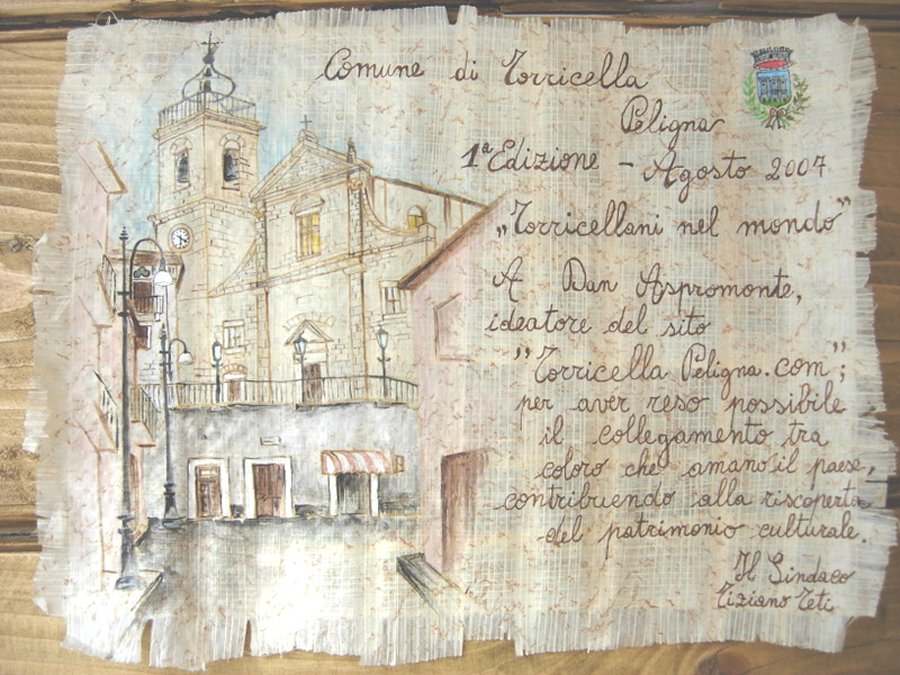 Comune di Torricella
Peligna
1ª Edizione - Agosto 2007
„Torricellani nel mondo"
A Dan Aspromonte,
ideatore del sito
"Torricella Peligna.com";
per aver reso possibile
il collegamento tra
coloro che amano il paese,
contribuendo alla riscoperta
del patrimonio culturale.
Il Sindaco
Tiziano Teti